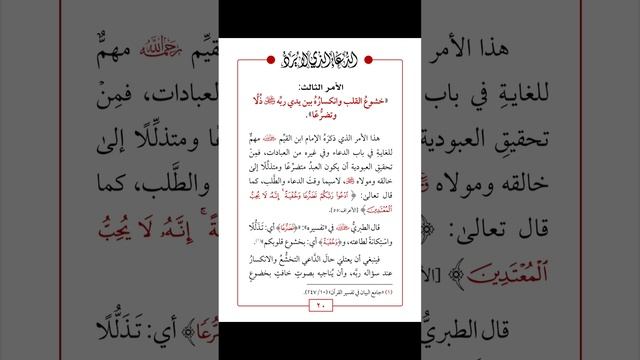 الدُّعَاءُ الَّذِي لَا يُرَدُّ
الأمـر الثالث:
«خشوعُ القلب وانكسارُهُ بين يدي ربِّه ﷻ ذُلًّا
وتضرُّعًا».
هذا الأمر الذي ذكَرَهُ الإمام ابن القيِّم رحمه الله مهمٌّ
للغاية في باب الدعاء وفي غيره من العبادات، فمِنْ
تحقيق العبودية أن يكون العبدُ متضرِّعًا ومتذلِّلًا إلى
خالقه ومولاه ﷻ، لاسيما وقتَ الدعاء والطَّلب، كما
قال تعالى: ﴿ٱدْعُوا۟ رَبَّكُمْ تَضَرُّعًا وَخُفْيَةً ۚ إِنَّهُۥ لَا يُحِبُّ
ٱلْمُعْتَدِينَ﴾ [الأعراف:٥٥].
قال الطبريُّ رحمه الله في «تفسيره»: «﴿تَضَرُّعًا﴾ أي: تَذَلُّلًا
واسْتِكانةً لطاعته، و﴿وَخُفْيَةً﴾ أي: بخشوع قلوبكم»(١).
فينبغي أن يعتليَ حالَ الدَّاعي التخشُّعُ والانكسارُ
عند سؤاله ربَّه، وأن يُناجيه بصوتٍ خافتٍ بخضوعٍ
(١) «جامع البيان في تفسير القرآن» (١٠/٢٤٧).
٢٠
هذا الأمر
القيِّم رحمه الله مهمٌّ
للغايةِ في باب
العبادات، فمِنْ
تحقيقِ العبودية
ومتذلِّلًا إلى
خالقه ومولاه
والطَّلب، كما
قال تعالىٰ:
إِنَّهُۥ لَا يُحِبُّ
ٱلْمُعْتَدِينَ﴾
قال الطبريُّ
أي: تَذَلُّلًا